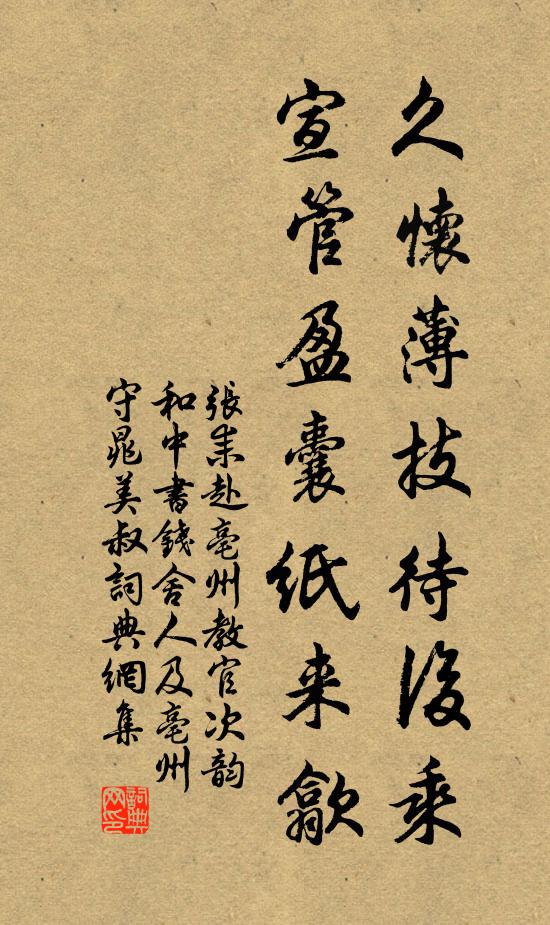 久懷薄技待後乘
宣管盈囊紙来歙
張耒赴亳州教官次韵
和中書錢舍人及亳州
守晁美叔詞典網集
詞典网印